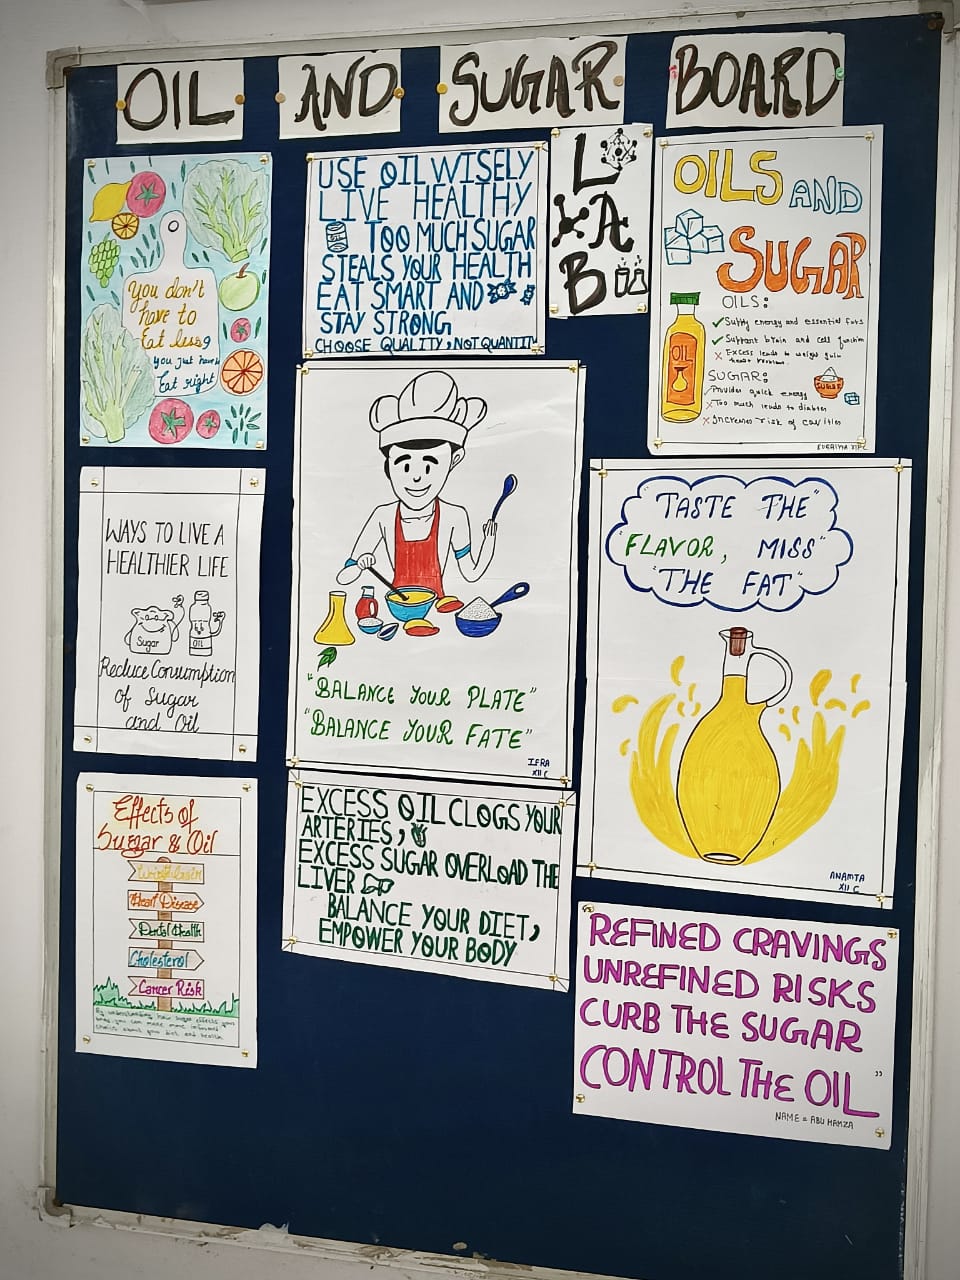 OIL AND SUGAR BOARD
You don't
have to
Eat less,
you just have to
Eat right
USE OIL WISELY
LIVE HEALTHY
OIL
TOO MUCH SUGAR
STEALS YOUR HEALTH
EAT SMART AND
STAY STRONG
CHOOSE QUALITY, NOT QUANTITY
LAB
OILS AND
SUGAR
OILS:
Supply energy and essential fats
Support brain and cell function
Excess leads to weight gain
heart problems.
SUGAR:
Provides quick energy
Too much leads to diabetes
Increases risk of cavities
OIL
SUGAR
XII C
WAYS TO LIVE A
HEALTHIER LIFE
Sugar
OIL
Reduce Consumption
of Sugar
and Oil
"BALANCE YOUR PLATE"
"BALANCE YOUR FATE"
IFRA
XII C
"TASTE THE"
"FLAVOR, MISS"
"THE FAT"
ANAMTA
XII C
Effects of
Sugar & Oil
Heart Disease
Dental Health
Cholesterol
Cancer Risk
By understanding how sugar effects your
body, you can make more informed
choices about your diet and health
EXCESS OIL CLOGS YOUR
ARTERIES,
EXCESS SUGAR OVERLOAD THE
LIVER
BALANCE YOUR DIET,
EMPOWER YOUR BODY
REFINED CRAVINGS
UNREFINED RISKS
CURB THE SUGAR
CONTROL THE OIL"
NAME = ABU HAMZA